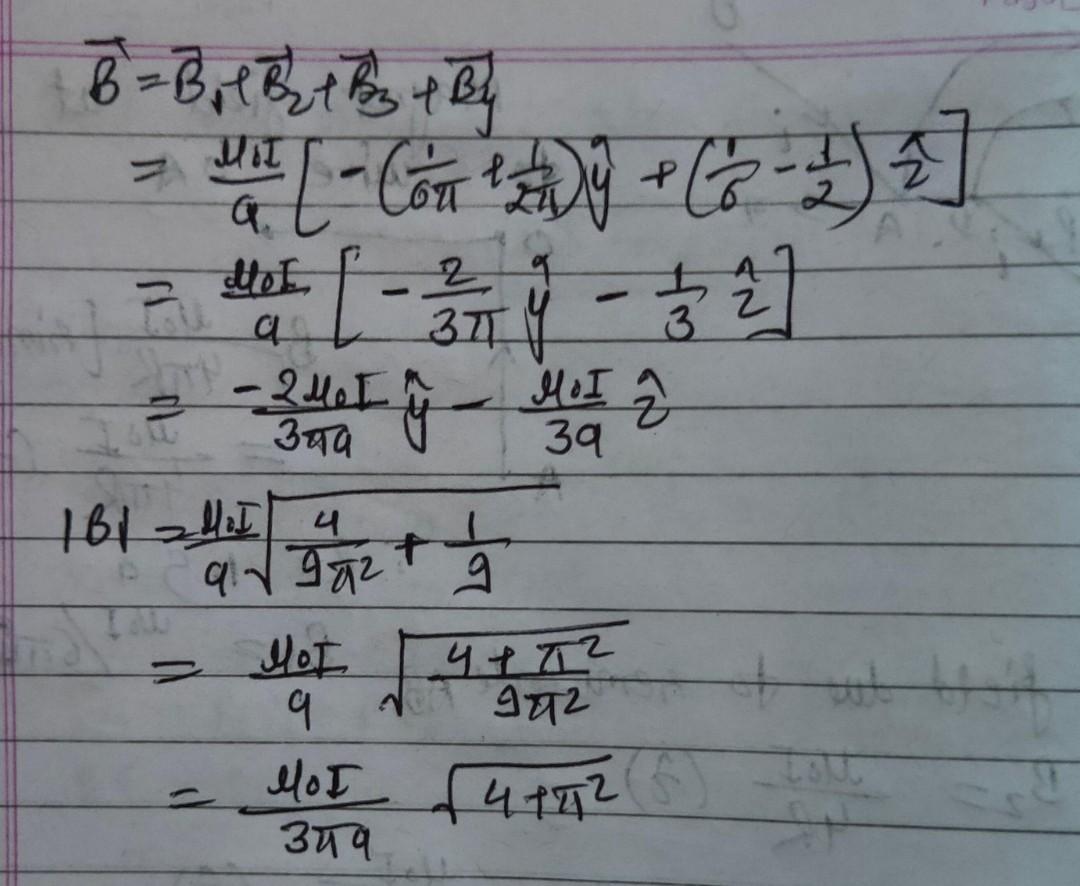 B⃗ = B⃗₁ + B⃗₂ + B⃗₃ + B⃗₄
= μ₀I/a [ -(1/6π + 1/2π) ŷ + (1/6 - 1/2) ẑ ]
= μ₀I/a [ - 2/3π ŷ - 1/3 ẑ ]
= -2μ₀I/3πa ŷ - μ₀I/3a ẑ
|B| = μ₀I/a √(4/9π² + 1/9)
= μ₀I/a √((4+π²)/9π²)
= μ₀I/3πa √(4+π²)